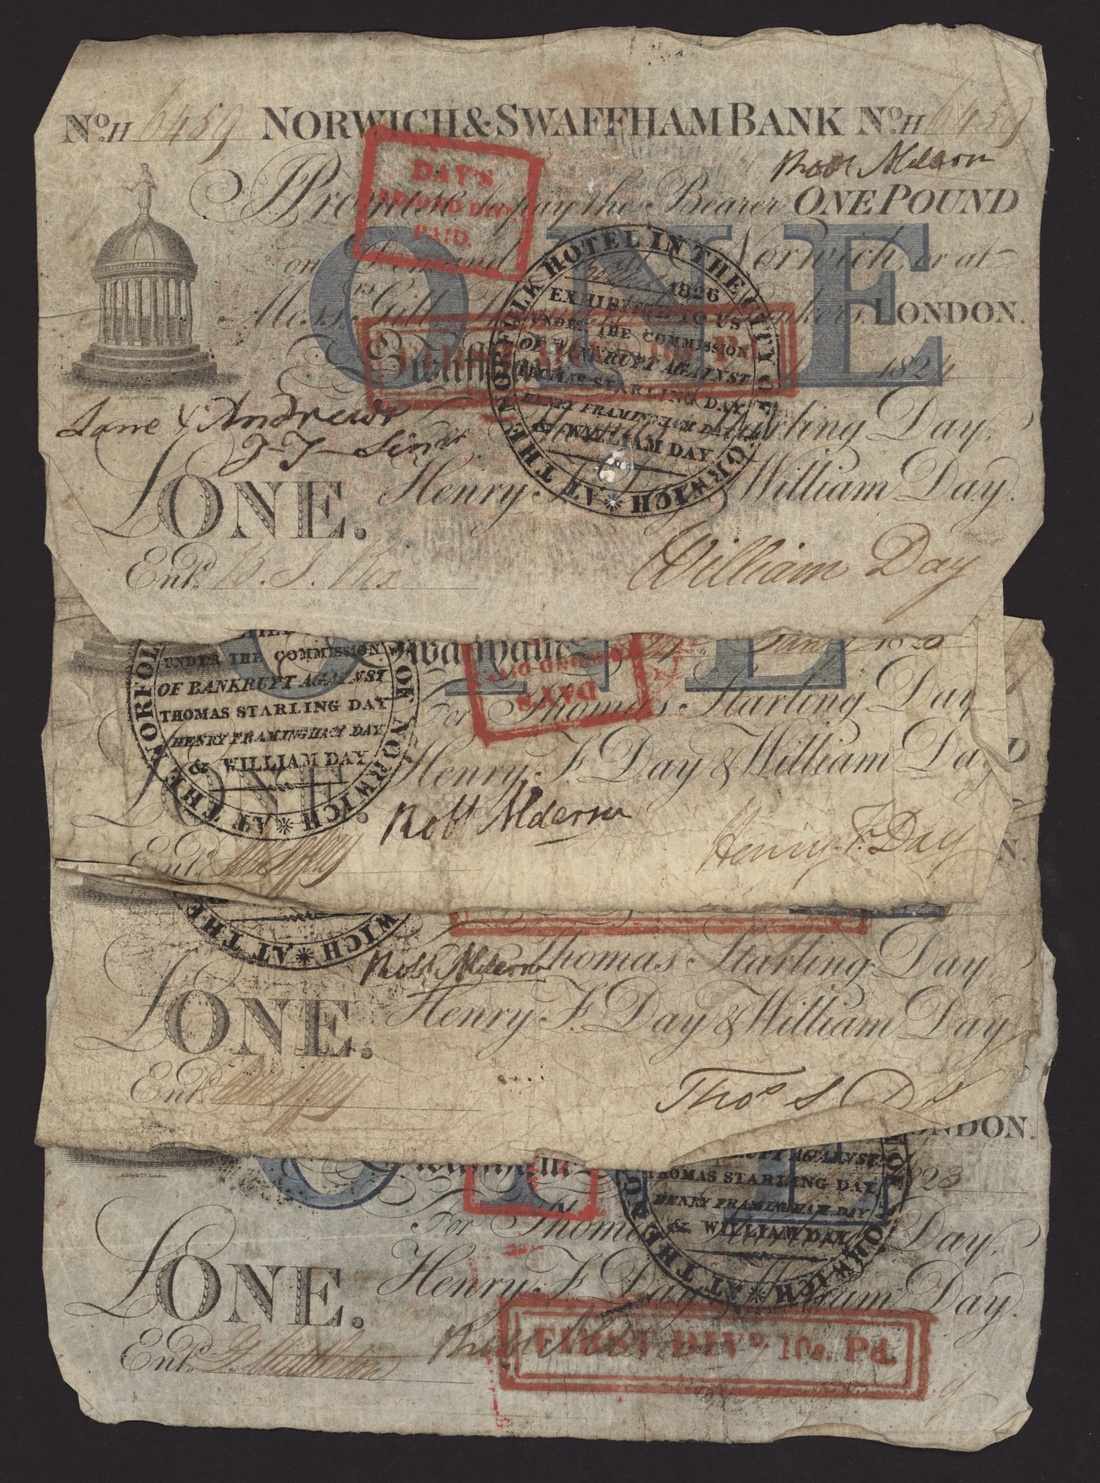 No. H 6459 NORWICH & SWAFFHAM BANK No. H 6459
Robt Alderson
I Promise to pay the Bearer ONE POUND
on Demand Norwich, or at
Messrs. LONDON.
Swaffham 1824
Starling Day,
Henry William Day.
£ONE.
Entd.
William Day
Jane Andrews
DAY'S
SECOND DIVD.
PAID.
AT THE NORFOLK HOTEL IN THE CITY OF NORWICH
1826
EXHIBITED TO US
UNDER THE COMMISSION
OF BANKRUPT AGAINST
THOMAS STARLING DAY
HENRY FRAMINGHAM DAY
& WILLIAM DAY
Swaffham
For Thomas Starling Day
Henry F. Day & William Day
£ONE.
Entd.
Robt Alderson
Henry F. Day
DAY'S
SECOND DIVD.
UNDER THE COMMISSION
OF BANKRUPT AGAINST
THOMAS STARLING DAY
HENRY FRAMINGHAM DAY
& WILLIAM DAY
AT THE NORFOLK
OF NORWICH
D
N.
Thomas Starling Day,
Henry F. Day & William Day
£ONE.
Entd.
Robt Alderson
Thos S D
AT THE
WICH
LONDON.
Swaffham 1823
For Thomas Day,
Henry F. Day William Day.
£ONE.
Entd.
BANKRUPT AGAINST
THOMAS STARLING DAY
HENRY FRAMINGHAM DAY
& WILLIAM DAY
AT THE NORWICH
FIRST DIVD. 10s. Pd.